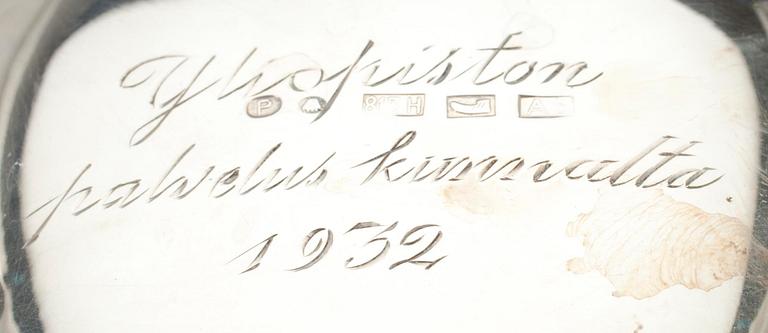 Yliopiston
P 813H A
palveluskunnalta
1932